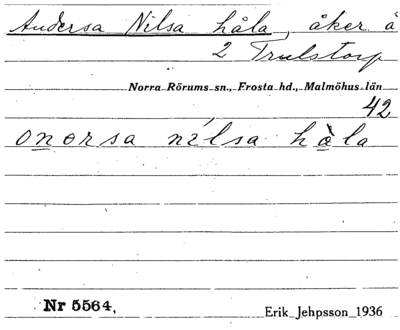 Andersa Nilsa håla, åker å
2 Trulstorp
Norra Rörums sn., Frosta hd., Malmöhus län
42
onorsa nílsa hàla
Nr 5564,
Erik Jehpsson 1936